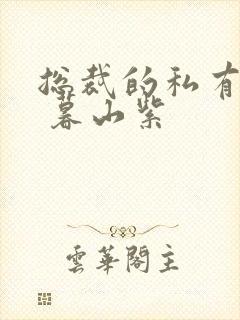 总裁的私有
暮山紫
雲華閣主